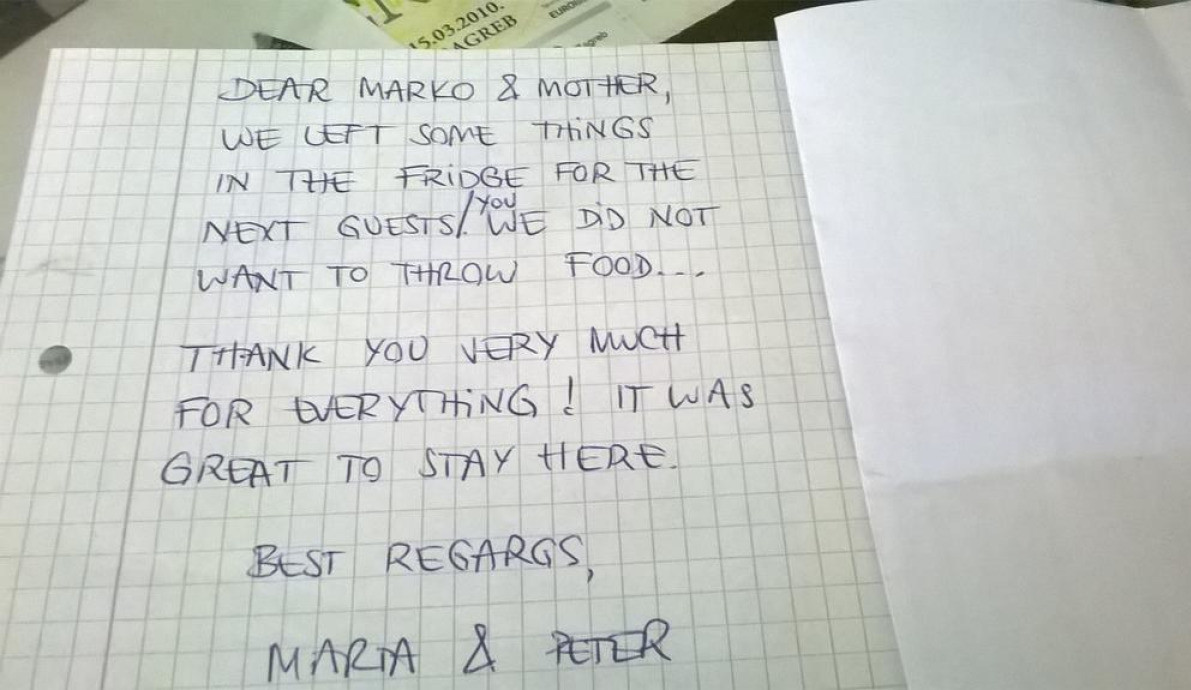 15.03.2010.
ZAGREB
Zagreb
DEAR MARKO & MOTHER,
WE LEFT SOME THiNGS
IN THE FRiDGE FOR THE
NEXT GUESTS/YOU. WE DiD NOT
WANT TO THROW FOOD...
THANK YOU VERY MUCH
FOR EVERYTHiNG! IT WAS
GREAT TO STAY HERE.
BEST REGARGS,
MARTA & PETER